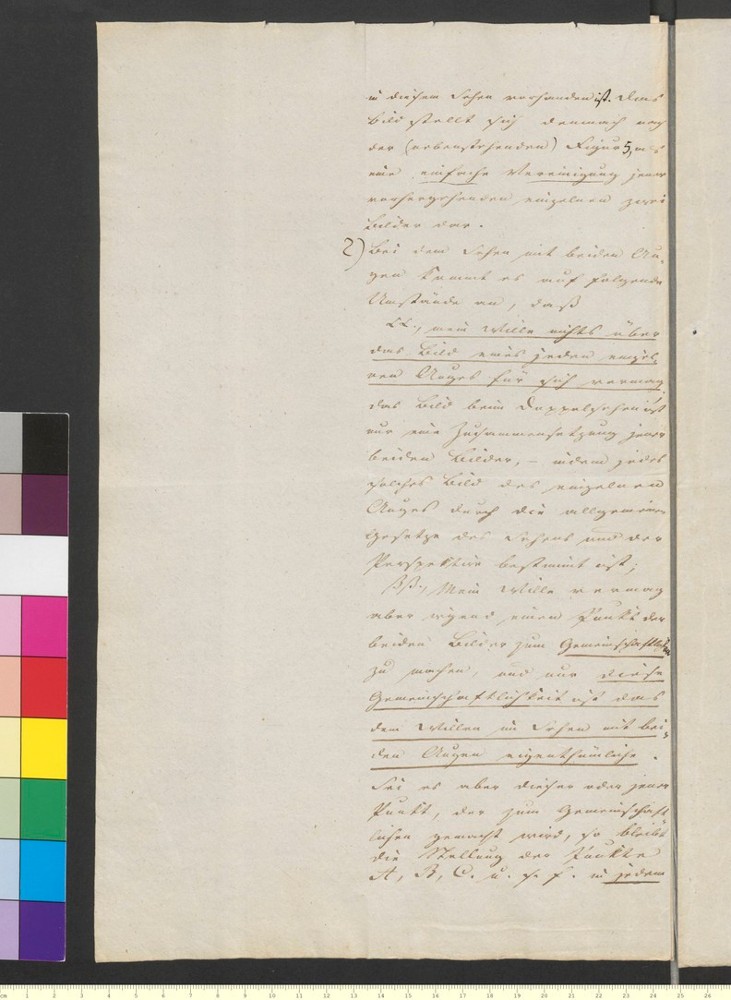 in diesem Sehen vorhanden ist. Das
Bild stellt sich demnach nach
der (nebenstehenden) Figur 5, als
eine einfache Vereinigung jener
vorhergehenden einzelnen zwei
Bilder dar.
2) Bei dem Sehen mit beiden Au-
gen kommt es auf folgende
Umstände an, daß
αα., mein Wille nichts über
das Bild eines jeden einzel-
nen Auges für sich vermag
das Bild beim Doppelsehen ist
nur eine Zusammensetzung jener
beiden Bilder, – indem jedes
solches Bild des einzelnen
Auges durch die allgemeinen
Gesetze des Sehens und der
Perspektive bestimmt ist;
ββ., Mein Wille vermag
aber irgend einen Punkt der
beiden Bilder zum Gemeinschaftlichen
zu machen, und nur diese
Gemeinschaftlichkeit ist das
dem Willen im Sehen mit bei-
den Augen eigenthümliche.
Sei es aber dieser oder jener
Punkt, der zum Gemeinschaft-
lichen gemacht wird, so bleibt
die Stellung der Punkte
A, B, C. u. s. f. in jedem